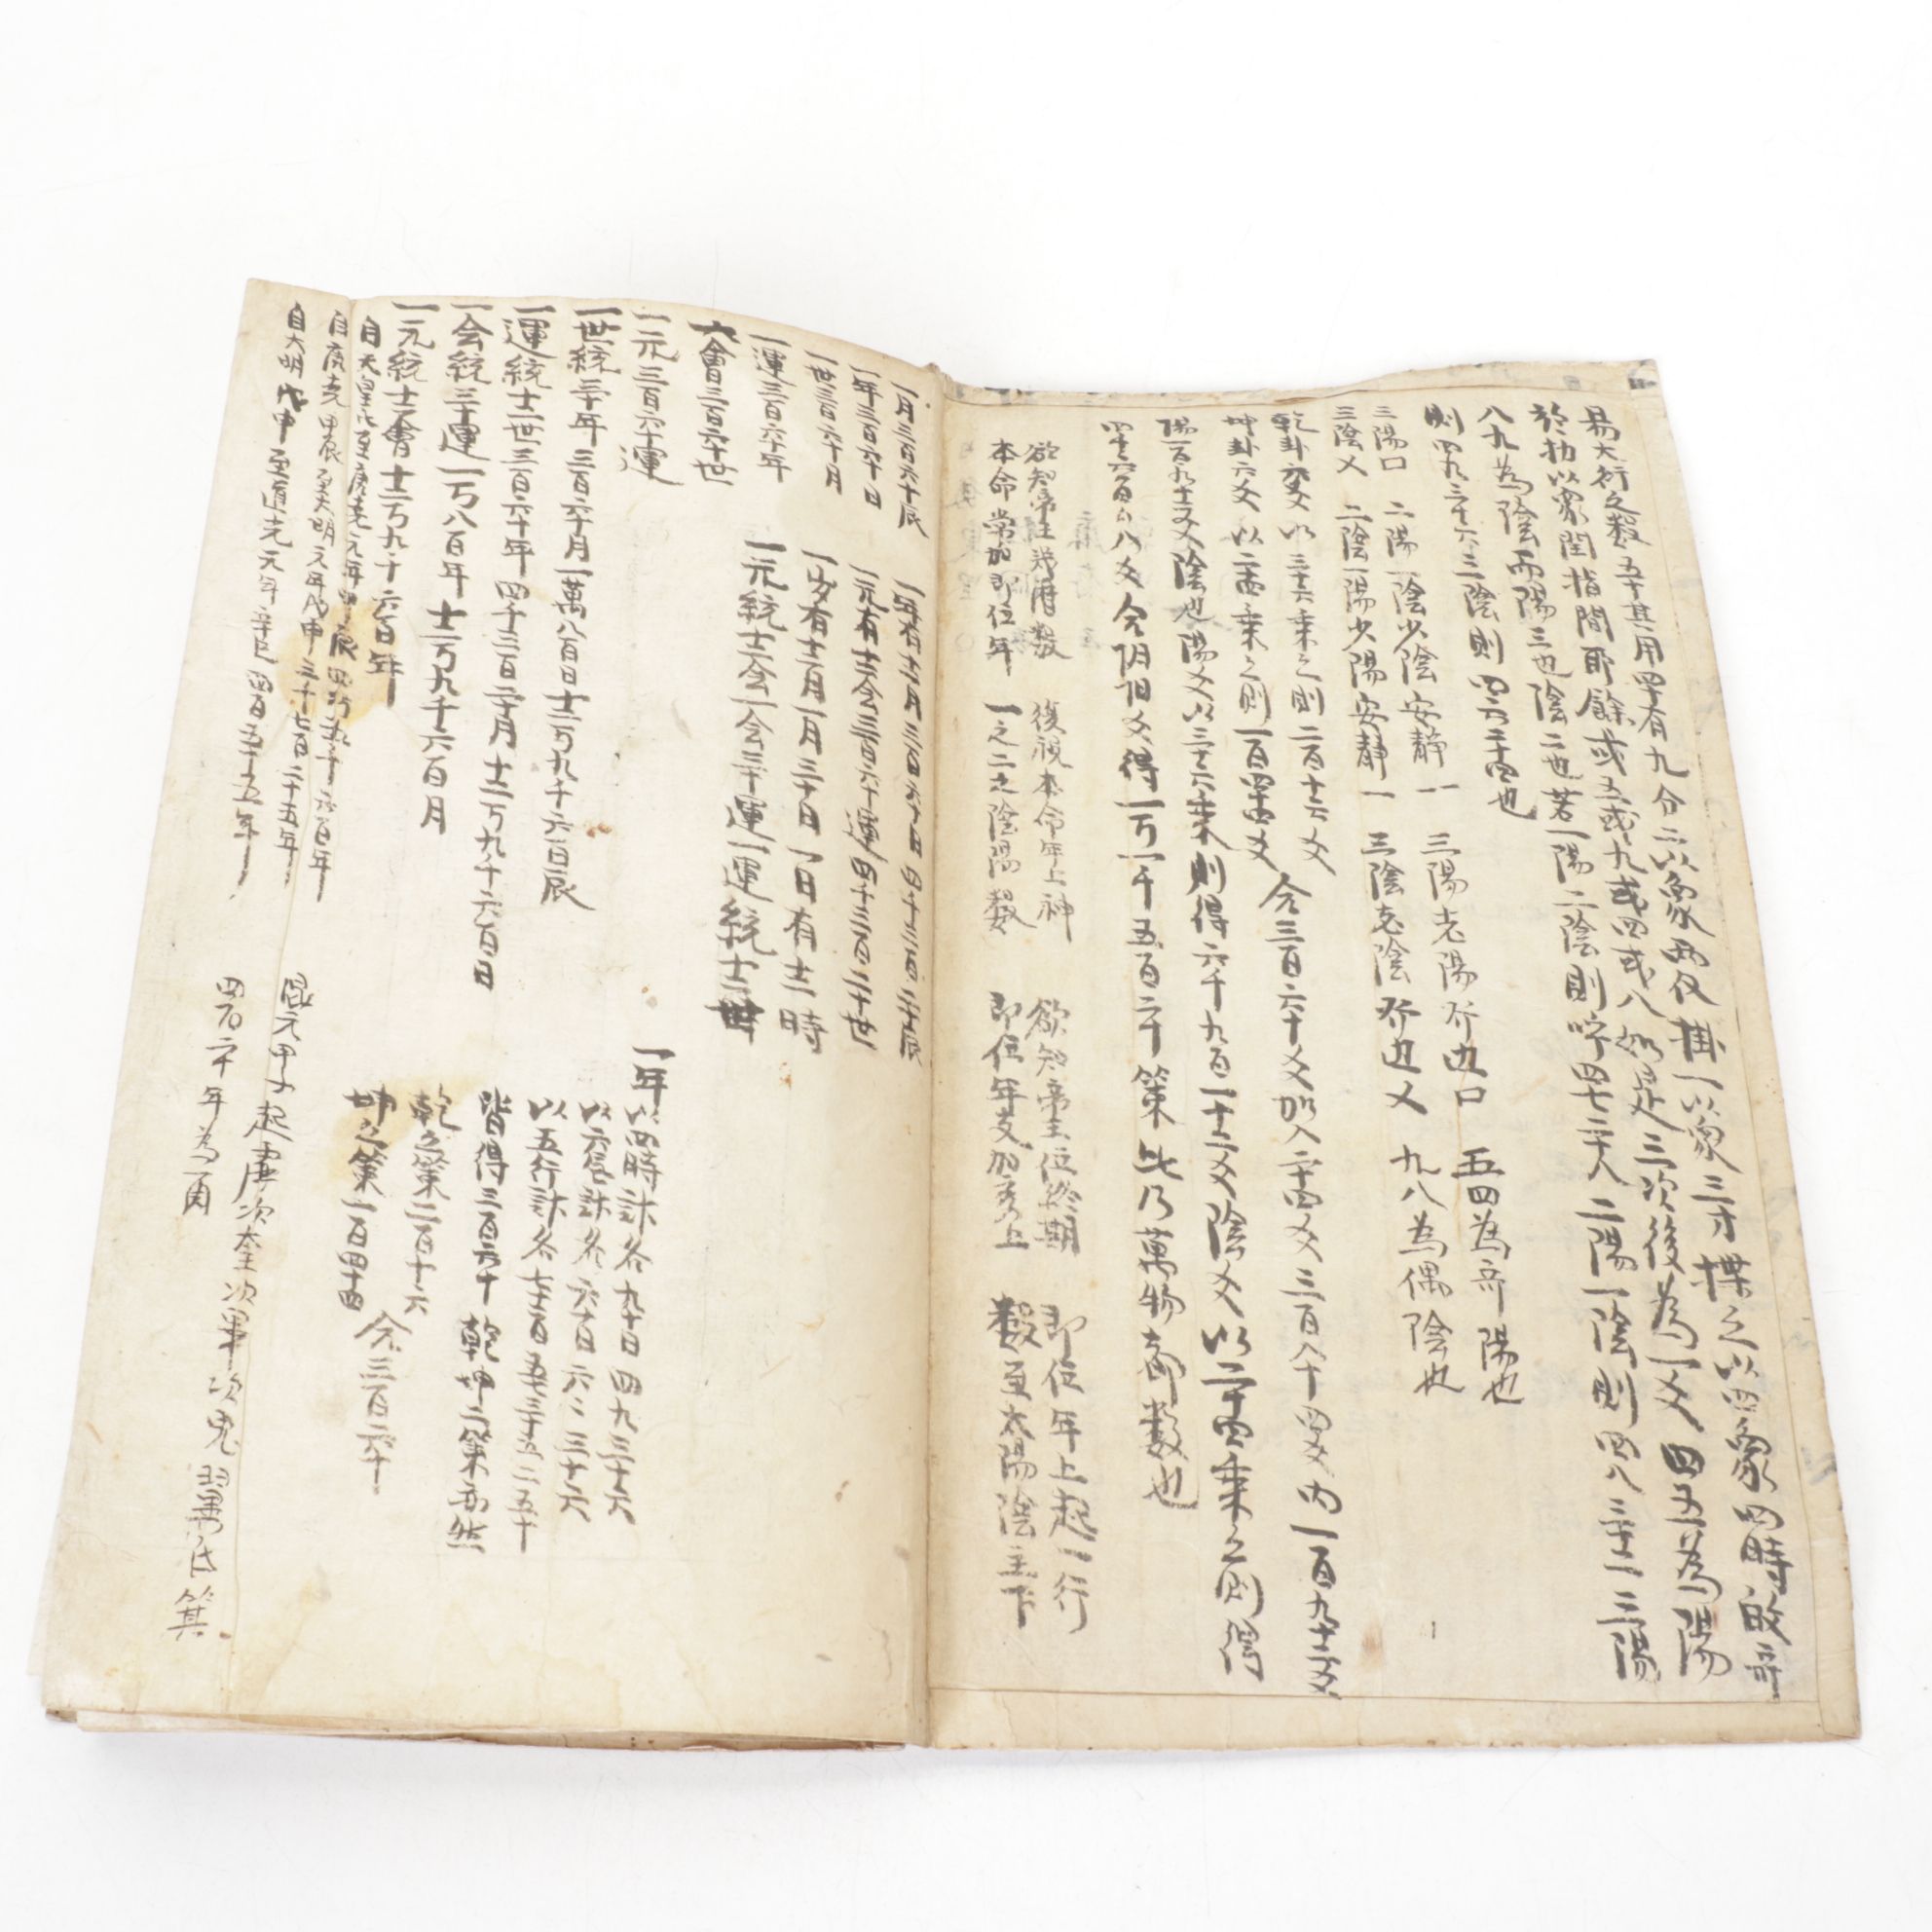 易大衍之數五十其用四十有九分二以象兩仪掛一以象三才揲之以四象四時故奇
於扐以象閏指間所餘或五或九或四或八如是三次後為一爻四五為陽
八九為陰而陽三也陰二也若一陽二陰則四七二十八二陽一陰則四八三十二三陽
則四九三十六三陰則四六二十四也
三陽口 二陽一陰少陰安静 三陽老陽 五四為奇陽也
三陰乂 二陰一陽少陽安静一 三陰老陰 九八為偶陰也
乾卦六爻以三十六乗之則二百十六爻
坤卦六爻以二十四乗之則一百四十四爻 合三百六十爻加入二十四爻三百八十四爻内一百九十二爻
陽一百九十二爻陰也陽爻以三十六乗則得六千九百一十二爻陰爻以二十四乗之則得
四千六百八爻合阴阳爻得一万一千五百二十策此乃萬物之數也
欲知帝王幾曆数 復視本命年上神 欲知帝王位終期 即位年上起一行
本命常加即位年 一之二之陰陽數 即位年支加 數至太陽陰主下
一月三百六十辰 一年有十二月三百六十日四千三百二十辰
一年三百六十日 一元有十二会三百六十運四千三百二十世
一世三百六十月 一岁有十二月一月三十日一日有十二時
一運三百六十年 一元統十二会一会三十運一運統十二世
一會三百六十世
一元三百六十運
一世統三十年三百六十月一萬八百日十二万九千六百辰
一運統十二世三百六十年四千三百二十月十二万九千六百日
一会統三十運一万八百年十二万九千六百月
一元統十二會十二万九千六百年
一年以四時計各九十日四九三十六
以六気計各六十日六六三十六
以五行計各七十二百五
皆得三百六十 乾坤二策亦然
乾之策二百十六
坤之策一百四十四 合三百六十
自天皇氏至唐堯元年甲辰四万五千六百年
自唐堯甲辰至大明元年戊申三千七百二十五年
自大明戊申至道光元年辛巳四百五十五年
混元甲子起虚次奎次畢次鬼翼氐箕
四百二十年為一周